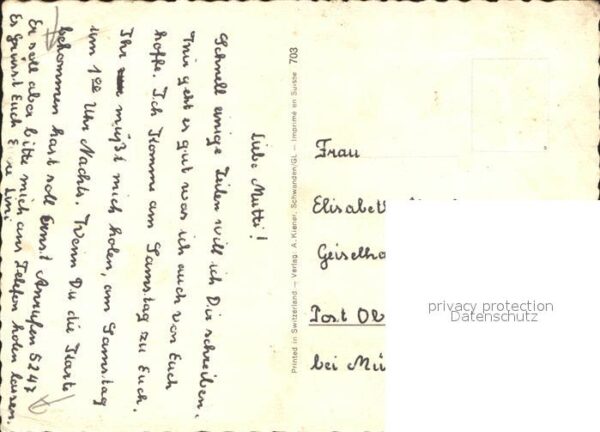 Liebe Mutti!
Schnell einige Zeilen will ich Dir schreiben.
Mir geht es gut was ich auch von Euch
hoffe. Ich komme am Samstag zu Euch.
Ihr müßt mich holen, am Samstag
um 1 00 Uhr Nachts. Wenn Du die Karte
bekommen hast soll Ernst Anrufen 5247
Er soll aber bitte mich ans Telefon holen lassen.
Es grüsst Euch Eure
Printed in Switzerland — Verlag: A. Kiener, Schwanden/GL — Imprimé en Suisse 703
Frau
Elisabeth
Geiselha
Post Ob
bei Mü
privacy protection
Datenschutz